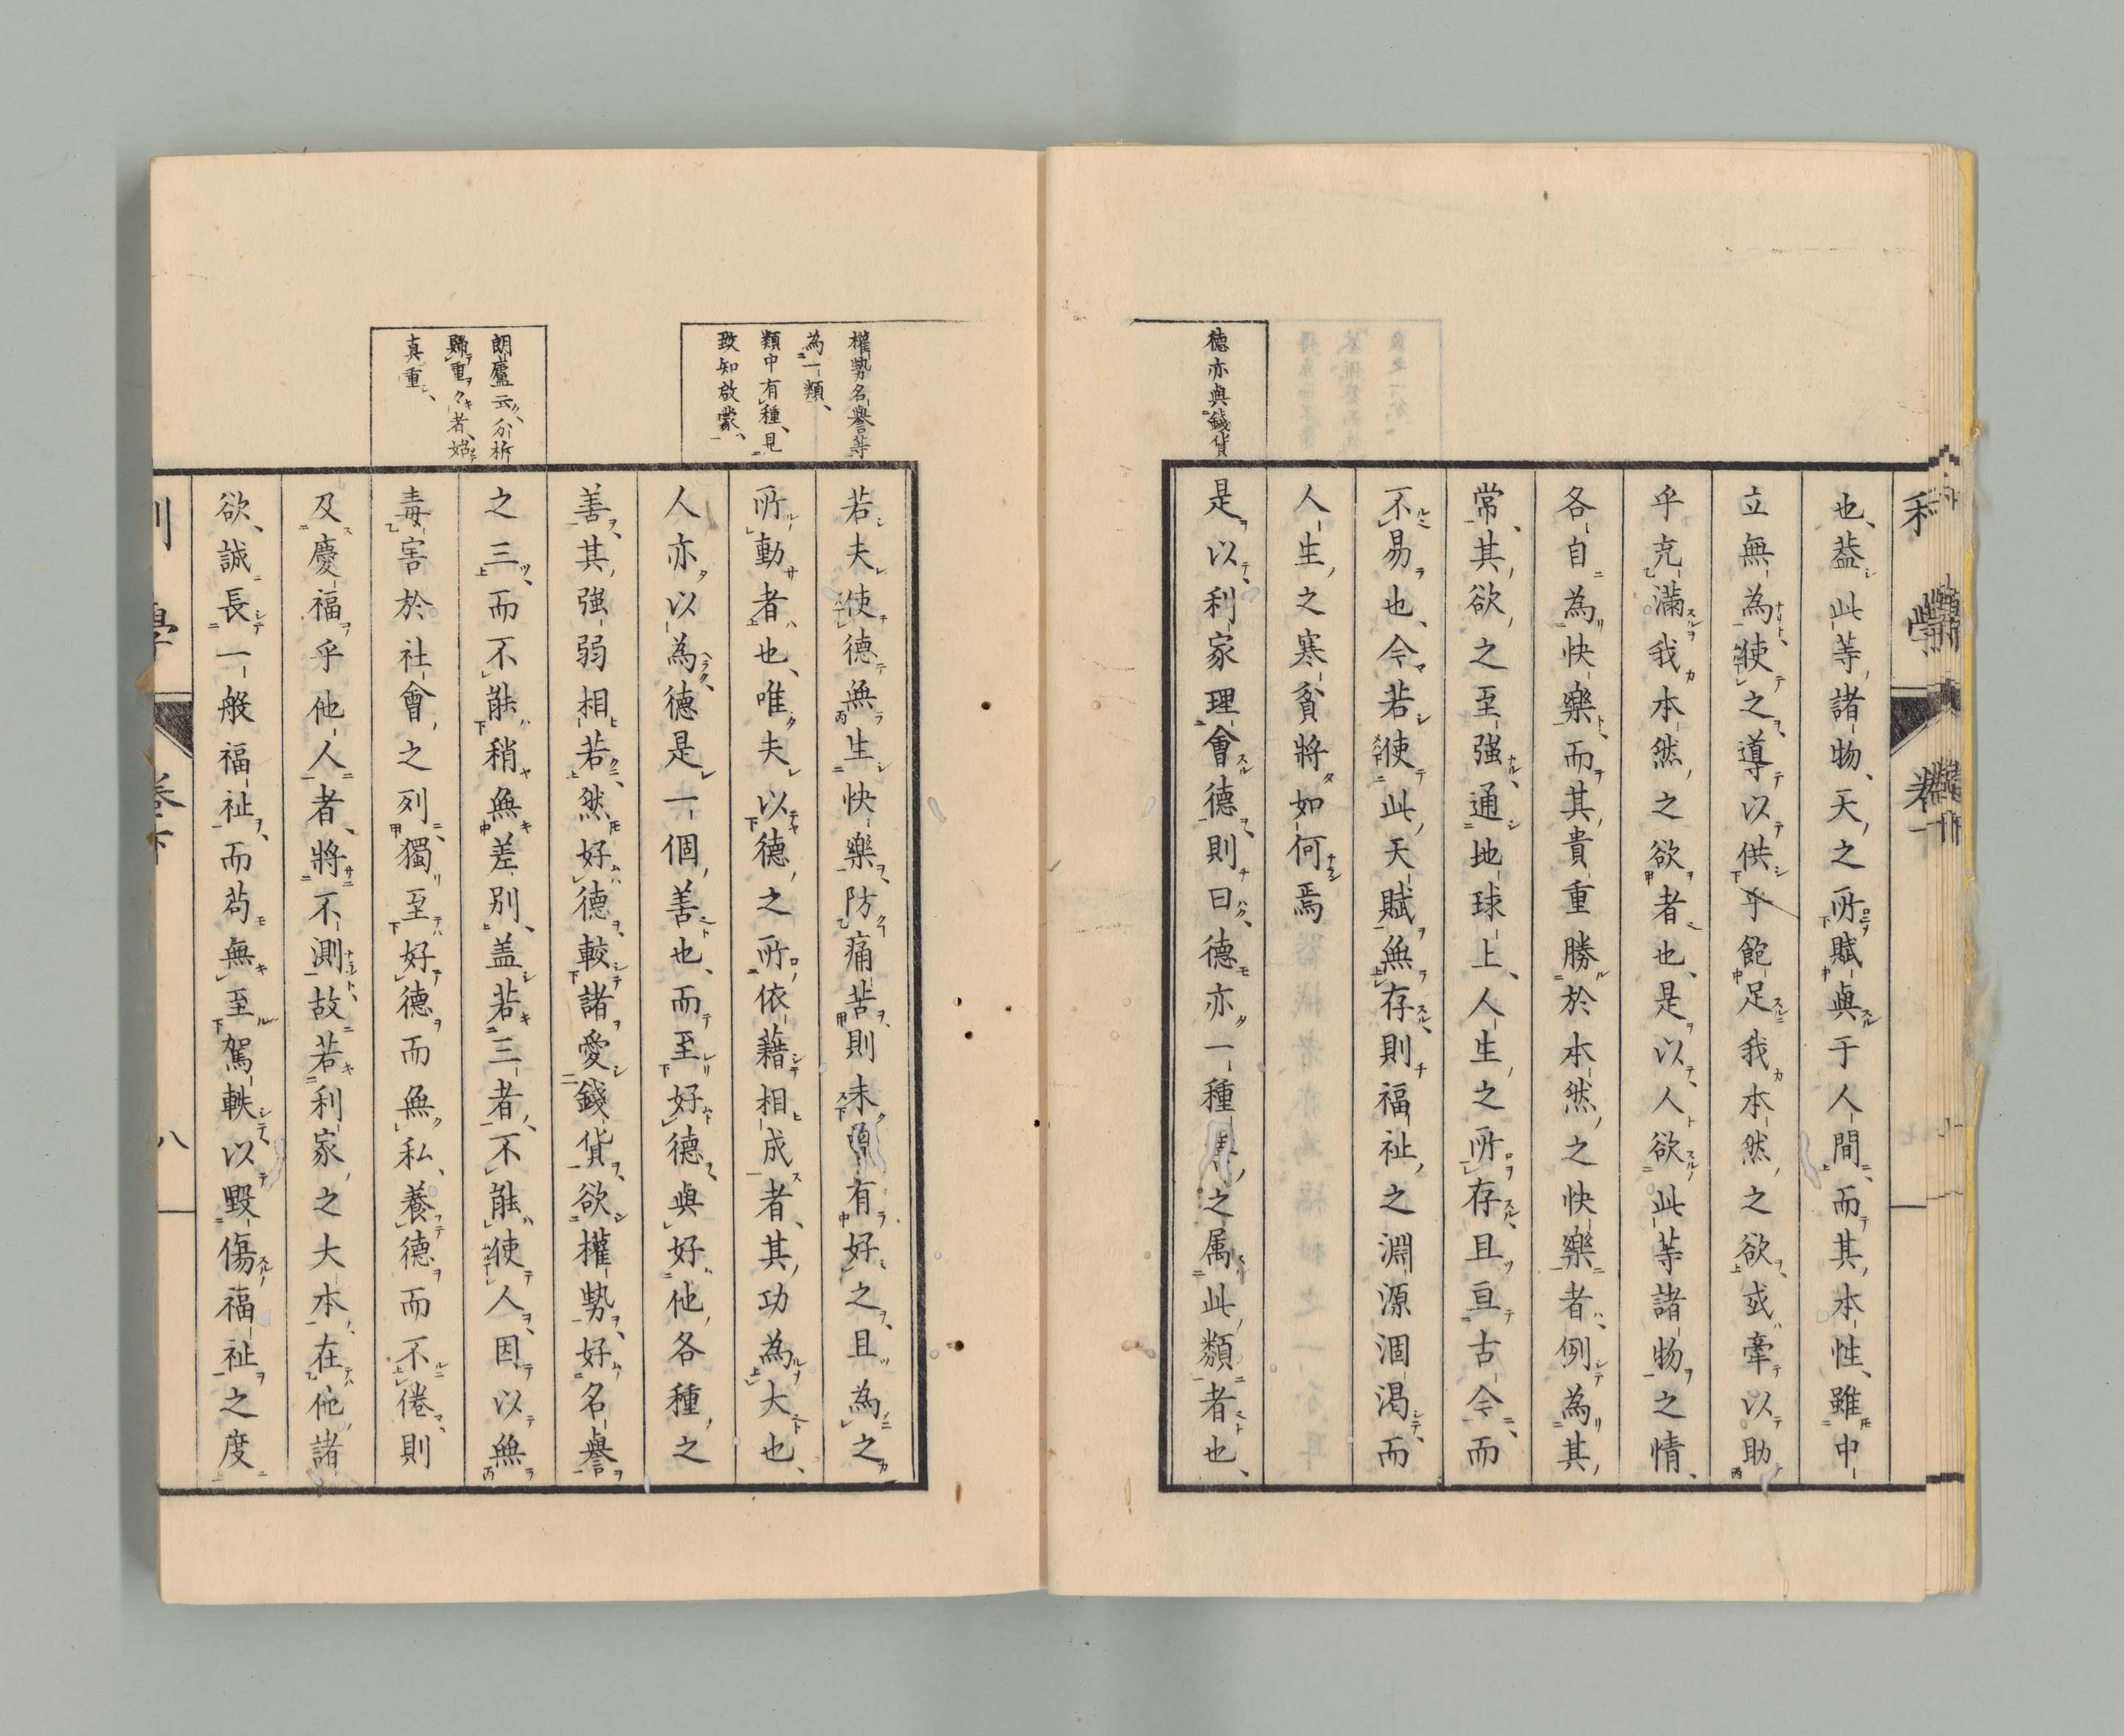 也、葢此等諸物、天之所賦與于人間、而其本性、雖中
立無為、使之導以供乎飽足我本然之欲、或牽以助
乎充滿我本然之欲者也、是以人欲此等諸物之情、
各自為快樂、而其貴重勝於本然之快樂者、例為其
常、其欲之至强、通地球上、人生之所存、且亘古今、而
不易也、今若使此天賦無存、則福祉之淵源涸渇、而
人生之寒貧將如何焉
德亦與錢貨
是以利家理會德、則曰、德亦一種之属此類者也、
權勢名譽等
為一類、
類中有種、見
致知啟蒙、
若夫使德無生快樂、防痛苦、則未有好之、且為之
所動者也、唯夫以德之所依藉相成者、其功為大也、
人亦以為、德是一個善也、而至好德與好他各種之
善、其强弱相若、然好德、較諸愛錢貨、欲權勢、好名譽
之三、而不能稍無差別、盖若三者、不能使人、因以無
朗廬云、分析
歸重々者、始
真重、
毒害於社會之列、獨至好德而無私、養德而不倦、則
及慶福乎他人者、將不測、故若利家之大本、在他諸
欲、誠長一般福祉、而苟無至駕軼以毀傷福祉之度
八